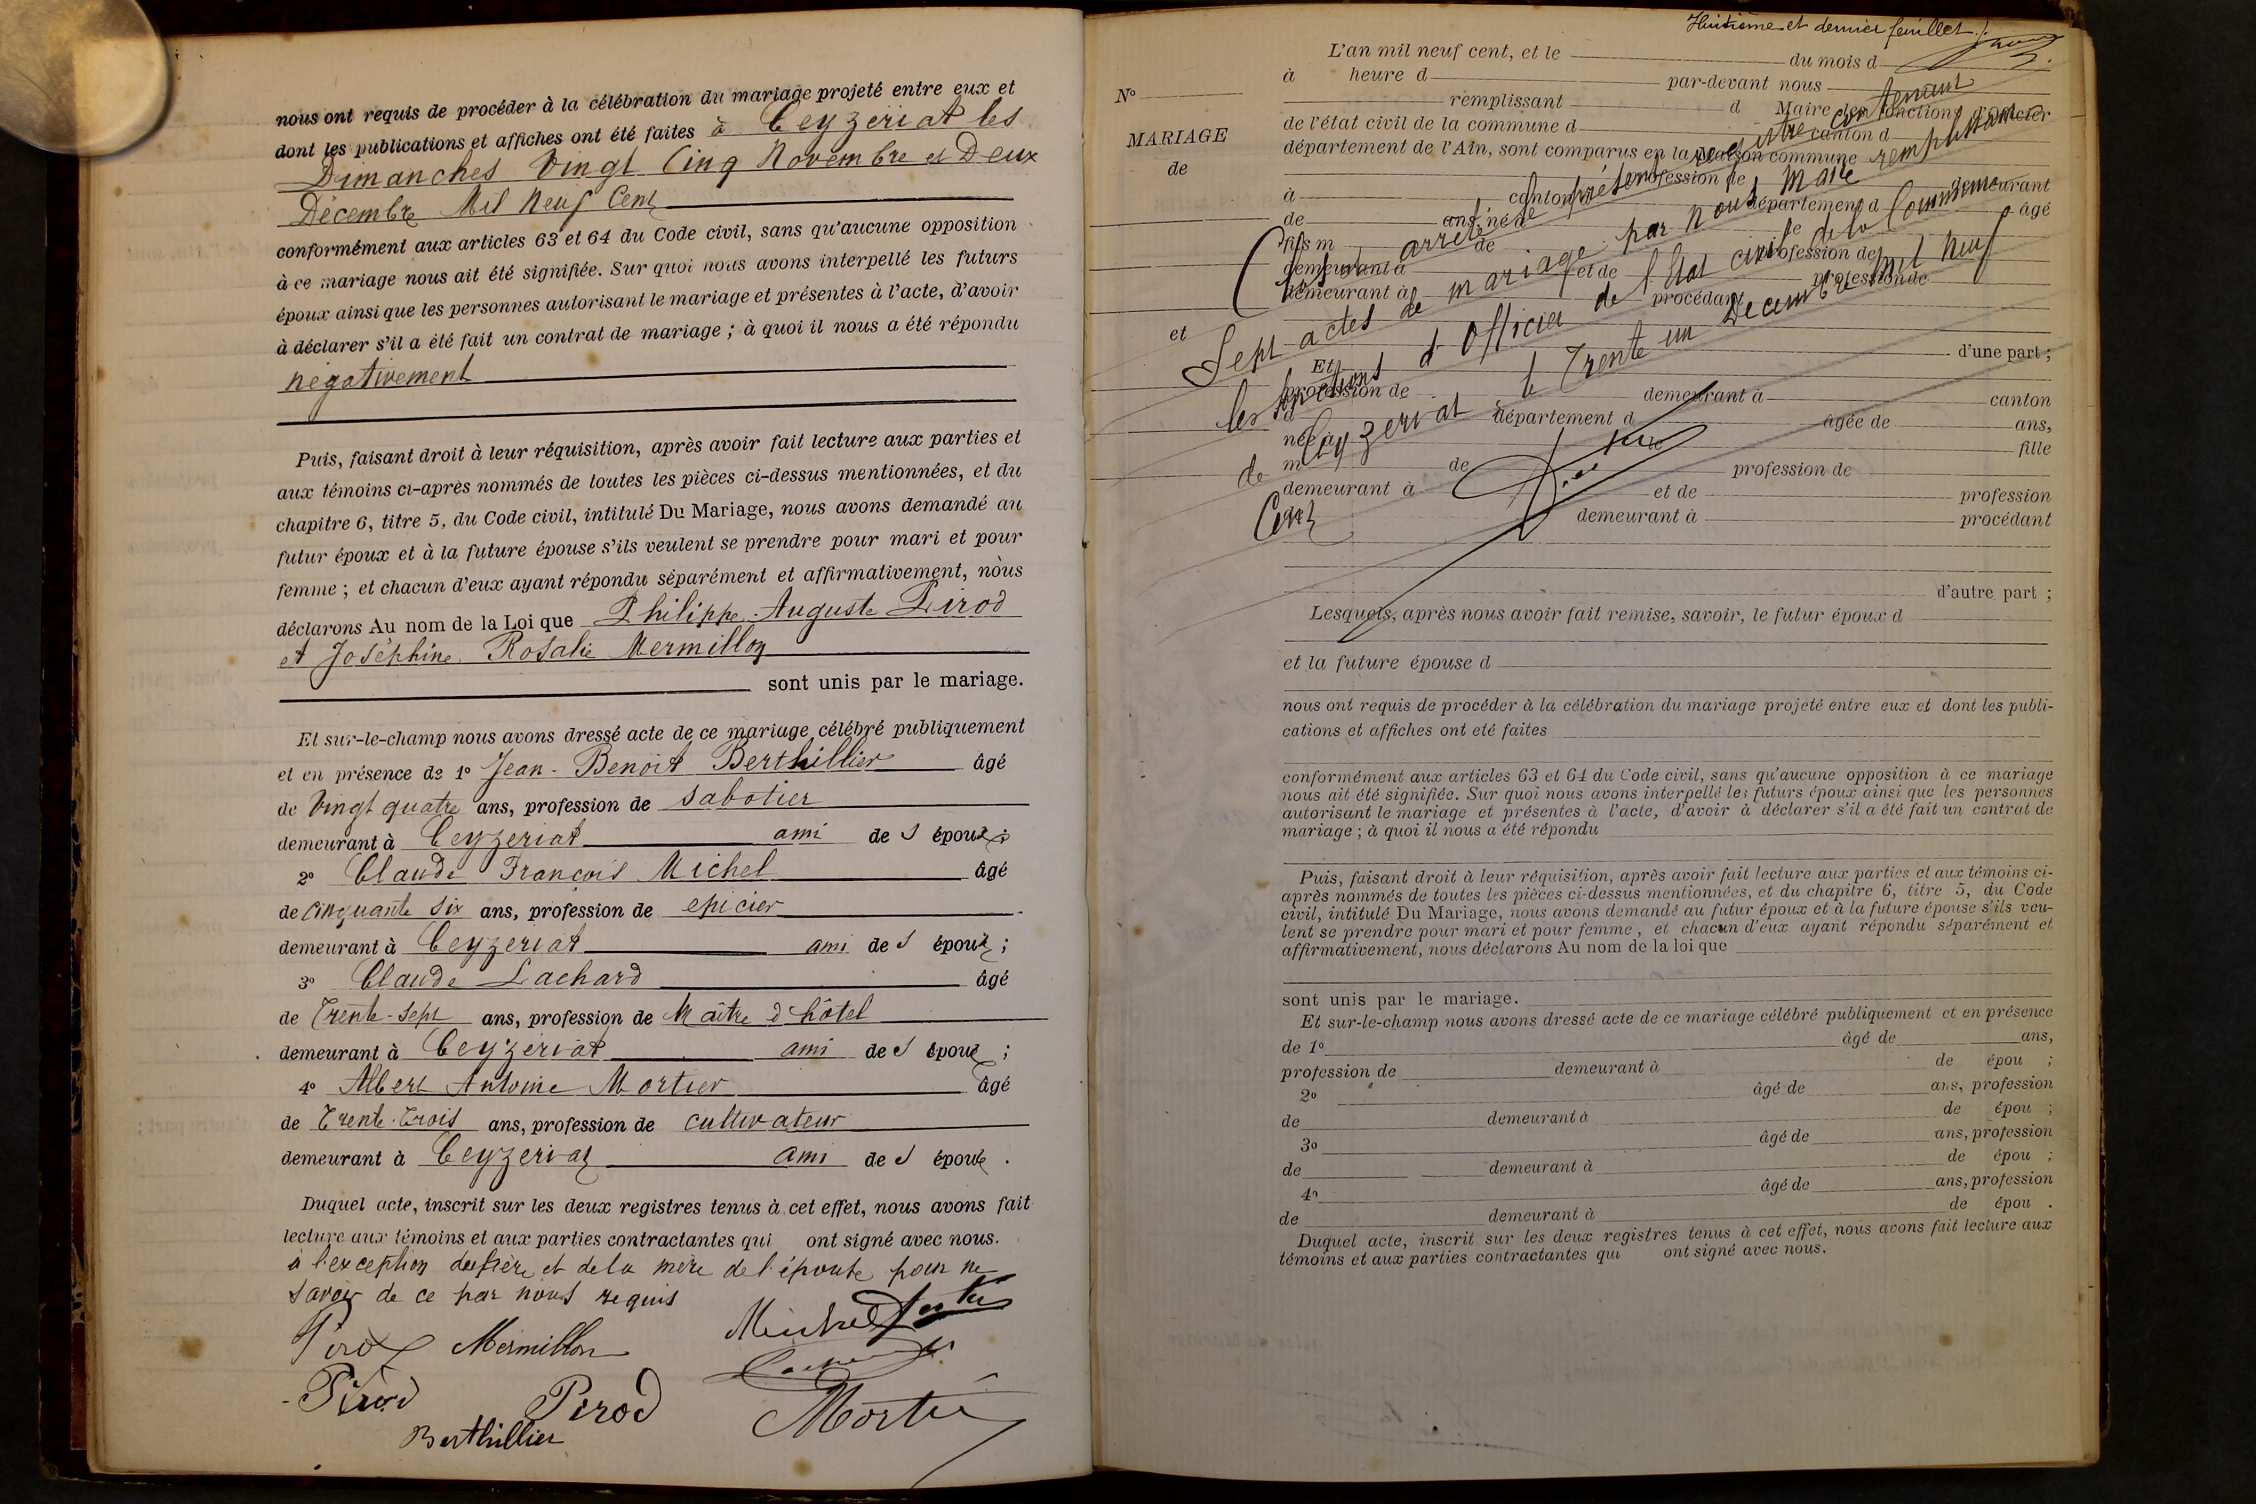 nous ont requis de procéder à la célébration du mariage projeté entre eux et
dont les publications et affiches ont été faites à Ceyzériat les
Dimanches Vingt Cinq Novembre et Deux
Décembre Mil Neuf Cent
conformément aux articles 63 et 64 du Code civil, sans qu'aucune opposition
à ce mariage nous ait été signifiée. Sur quoi nous avons interpellé les futurs
époux ainsi que les personnes autorisant le mariage et présentes à l'acte, d'avoir
à déclarer s'il a été fait un contrat de mariage ; à quoi il nous a été répondu
négativement
Puis, faisant droit à leur réquisition, après avoir fait lecture aux parties et
aux témoins ci-après nommés de toutes les pièces ci-dessus mentionnées, et du
chapitre 6, titre 5, du Code civil, intitulé Du Mariage, nous avons demandé au
futur époux et à la future épouse s'ils veulent se prendre pour mari et pour
femme ; et chacun d'eux ayant répondu séparément et affirmativement, nous
déclarons Au nom de la Loi que Philippe-Auguste Pirod
et Joséphine Rosalie Mermillon
sont unis par le mariage.
Et sur-le-champ nous avons dressé acte de ce mariage célébré publiquement
et en présence de 1° Jean-Benoit Berthillier âgé
de Vingt quatre ans, profession de sabotier
demeurant à Ceyzeriat ami de s époux ;
2° Claude François Michel âgé
de cinquante six ans, profession de epicier
demeurant à Ceyzeriat ami de s époux ;
3° Claude Lachard âgé
de Trente-sept ans, profession de Maître d'hôtel
demeurant à Ceyzériat ami de s époux ;
4° Albert Antoine Mortier âgé
de Trente-Trois ans, profession de cultivateur
demeurant à Ceyzeriat ami de s époux .
Duquel acte, inscrit sur les deux registres tenus à cet effet, nous avons fait
lecture aux témoins et aux parties contractantes qui ont signé avec nous.
à l'exception du père et de la mère de l'épouse pour ne
savoir de ce par nous requis
Pirod Mermillon Michel
Pirod Pirod Mortier
Berthillier
Huitième et dernier feuillet
N°
MARIAGE
de
et
L'an mil neuf cent, et le du mois d
à heure d par-devant nous
remplissant d Maire les fonctions d'officier
de l'état civil de la commune d canton d
département de l'Ain, sont comparus en la maison commune
profession de demeurant
à canton d département d âgé
de ans, né à le
fils m de profession de
demeurant à et de profession de
demeurant à procédant
d'une part ;
Clos et arrêté le présent registre contenant
Sept actes de mariage par nous Maire remplissant
les fonctions d'Officier de l'Etat civil de la Commune
de Ceyzeriat le Trente un Décembre mil neuf
Cent
Et
profession de demeurant à canton
d département d âgée de ans,
née à le fille
m de profession de
demeurant à et de profession
de demeurant à procédant
d'autre part ;
Lesquels, après nous avoir fait remise, savoir, le futur époux d
et la future épouse d
nous ont requis de procéder à la célébration du mariage projeté entre eux et dont les publi-
cations et affiches ont eté faites
conformément aux articles 63 et 64 du Code civil, sans qu'aucune opposition à ce mariage
nous ait été signifiée. Sur quoi nous avons interpellé les futurs époux ainsi que les personnes
autorisant le mariage et présentes à l'acte, d'avoir à déclarer s'il a été fait un contrat de
mariage ; à quoi il nous a été répondu
Puis, faisant droit à leur réquisition, après avoir fait lecture aux parties et aux témoins ci-
après nommés de toutes les pièces ci-dessus mentionnées, et du chapitre 6, titre 5, du Code
civil, intitulé Du Mariage, nous avons demandé au futur époux et à la future épouse s'ils veu-
lent se prendre pour mari et pour femme, et chacun d'eux ayant répondu séparément et
affirmativement, nous déclarons Au nom de la loi que
sont unis par le mariage.
Et sur-le-champ nous avons dressé acte de ce mariage célébré publiquement et en présence
de 1° âgé de ans,
profession de demeurant à de épou ;
2° âgé de ans, profession
de demeurant à de épou ;
3° âgé de ans, profession
de demeurant à de épou ;
4° âgé de ans, profession
de demeurant à de épou .
Duquel acte, inscrit sur les deux registres tenus à cet effet, nous avons fait lecture aux
témoins et aux parties contractantes qui ont signé avec nous.